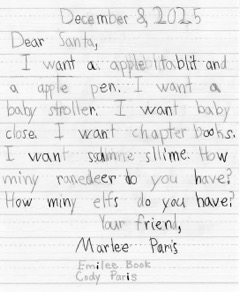 December 8, 2025
Dear Santa,
I want a apple tablit and
a apple pen. I want a
baby stroller. I want baby
close. I want chapter books.
I want sllime. How
miny ranedeer do you have?
How miny elfs do you have?
Your friend,
Marlee Paris
Emilee Book
Cody Paris